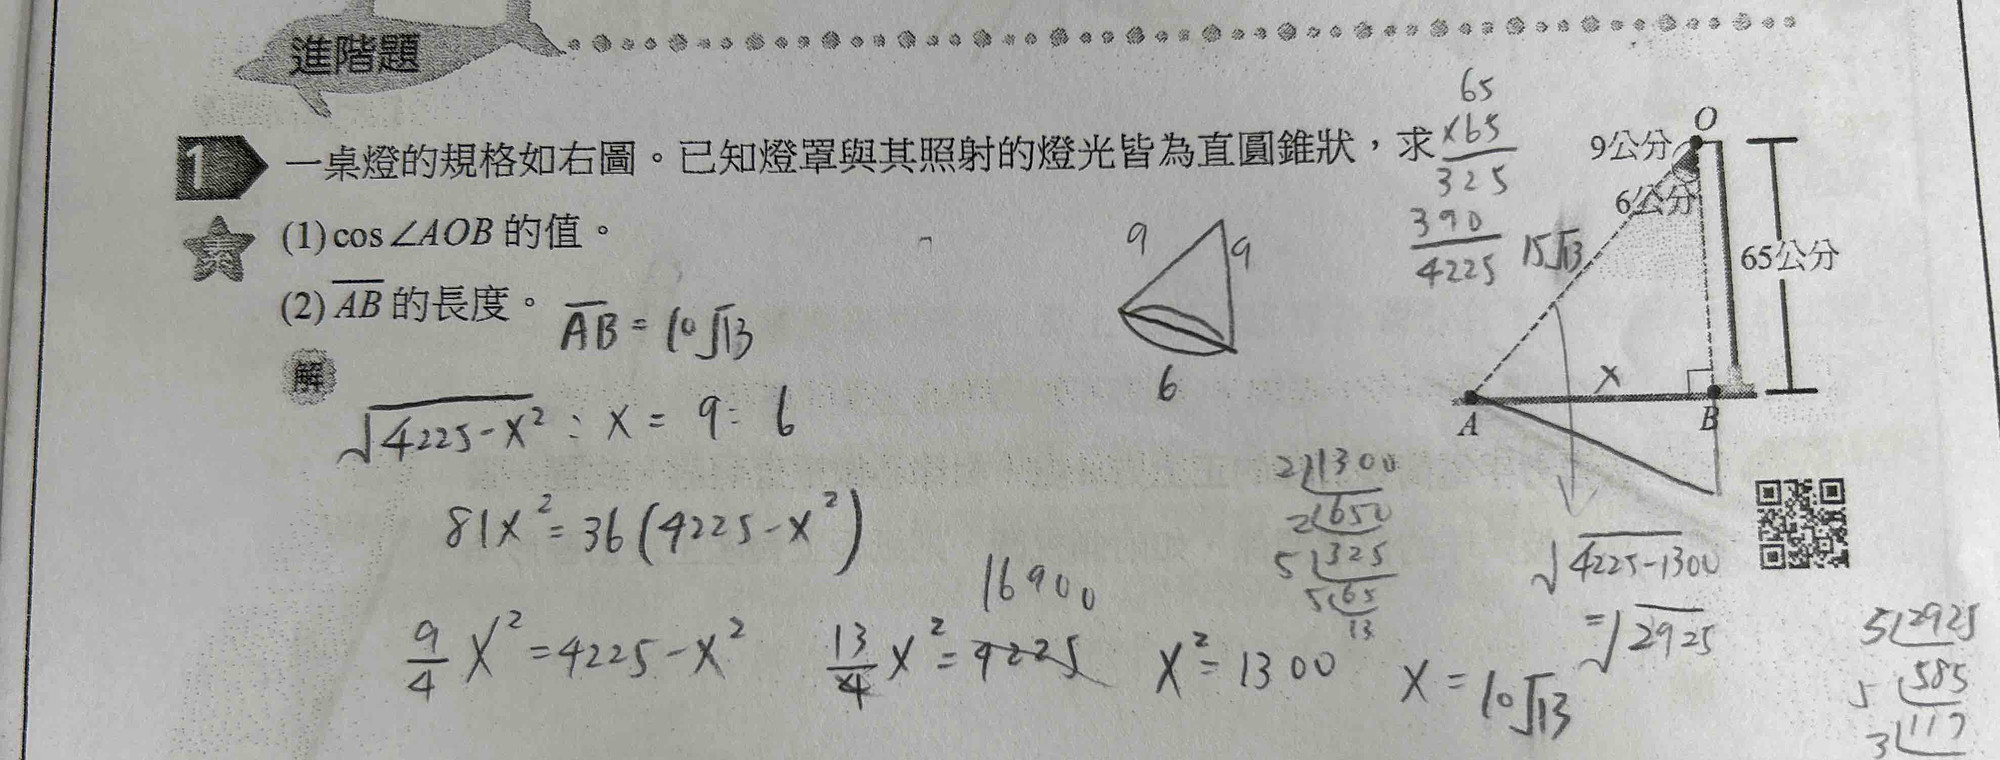 進階題
1 一桌燈的規格如右圖。已知燈罩與其照射的燈光皆為直圓錐狀，求
(1) cos∠AOB 的值。
(2) AB 的長度。
AB = 10√13
解
√4225-x² : x = 9 : 6
81x² = 36(4225-x²)
9/4 x² = 4225-x²
13/4 x² = 4225
16900
x² = 1300
x = 10√13
9
9
6
65
×65
325
390
4225
15√13
O
9公分
6公分
65公分
x
A
B
2 1300
2 650
5 325
5 65
13
√4225-1300
=√2925
5 2925
5 585
3 117